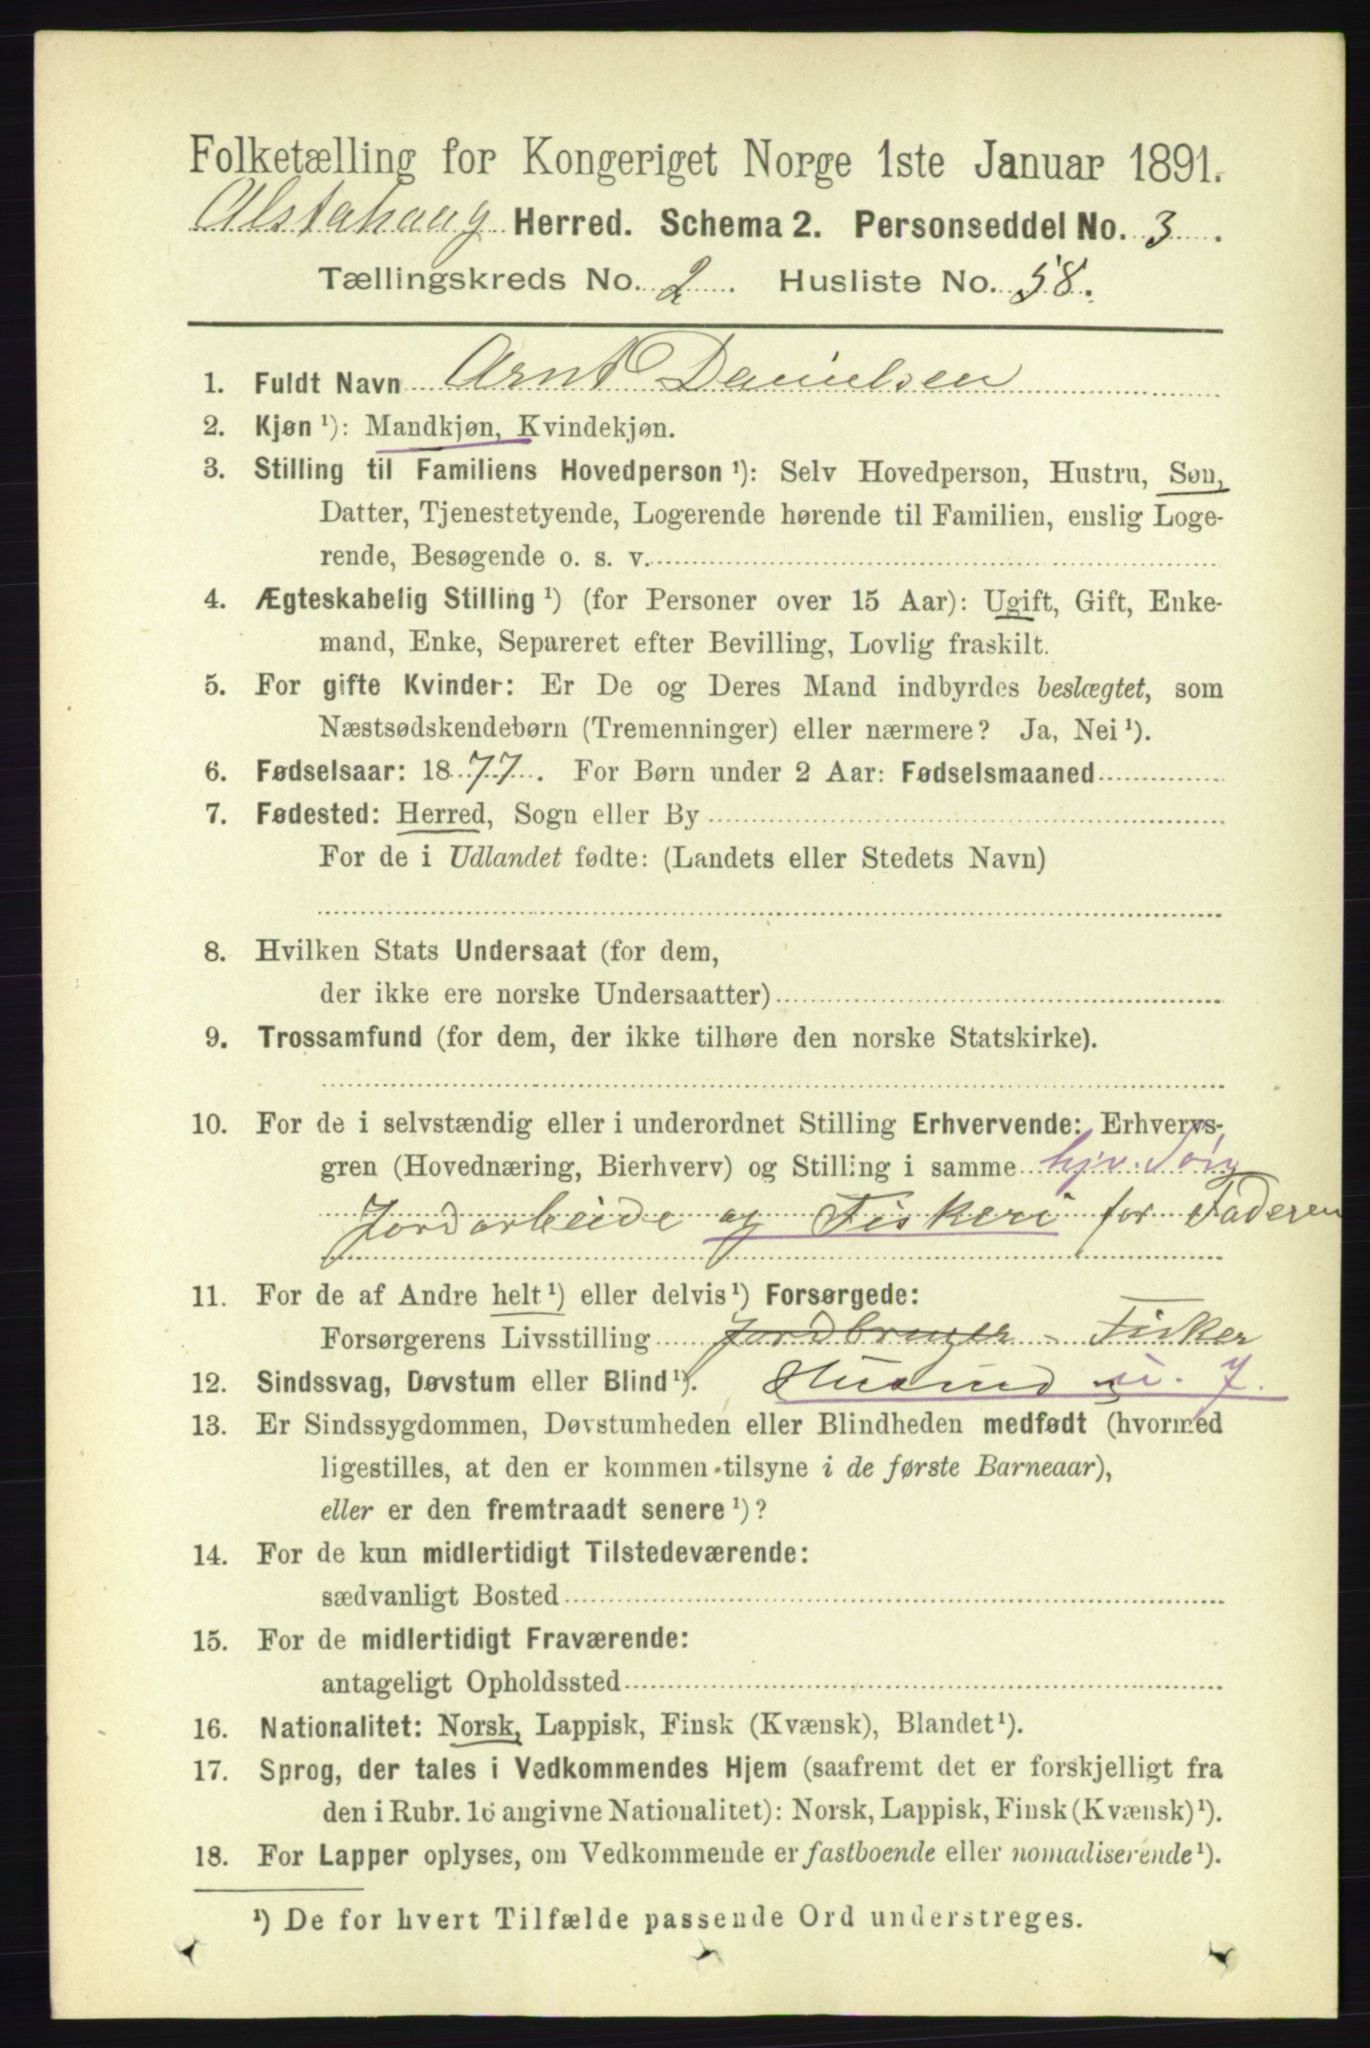 Folketælling for Kongeriget Norge 1ste Januar 1891.
Alstahaug Herred. Schema 2. Personseddel No. 3.
Tællingskreds No. 2. Husliste No. 58.
1. Fuldt Navn Arnt Danielsen
2. Kjøn ¹): Mandkjøn, Kvindekjøn.
3. Stilling til Familiens Hovedperson ¹): Selv Hovedperson, Hustru, Søn,
Datter, Tjenestetyende, Logerende hørende til Familien, enslig Loge-
rende, Besøgende o. s. v.
4. Ægteskabelig Stilling ¹) (for Personer over 15 Aar): Ugift, Gift, Enke-
mand, Enke, Separeret efter Bevilling, Lovlig fraskilt.
5. For gifte Kvinder: Er De og Deres Mand indbyrdes beslægtet, som
Næstsødskendebørn (Tremenninger) eller nærmere? Ja, Nei ¹).
6. Fødselsaar: 1877. For Børn under 2 Aar: Fødselsmaaned
7. Fødested: Herred, Sogn eller By
For de i Udlandet fødte: (Landets eller Stedets Navn)
8. Hvilken Stats Undersaat (for dem,
der ikke ere norske Undersaatter)
9. Trossamfund (for dem, der ikke tilhøre den norske Statskirke).
10. For de i selvstændig eller i underordnet Stilling Erhvervende: Erhvervs-
gren (Hovednæring, Bierhverv) og Stilling i samme
Jordarbeide og Fiskeri for Faderen
11. For de af Andre helt ¹) eller delvis ¹) Forsørgede:
Forsørgerens Livsstilling Jordbruger - Fisker
12. Sindssvag, Døvstum eller Blind ¹). Husmd
13. Er Sindssygdommen, Døvstumheden eller Blindheden medfødt (hvormed
ligestilles, at den er kommen tilsyne i de første Barneaar),
eller er den fremtraadt senere ¹)?
14. For de kun midlertidigt Tilstedeværende:
sædvanligt Bosted
15. For de midlertidigt Fraværende:
antageligt Opholdssted
16. Nationalitet: Norsk, Lappisk, Finsk (Kvænsk), Blandet ¹).
17. Sprog, der tales i Vedkommendes Hjem (saafremt det er forskjelligt fra
den i Rubr. 16 angivne Nationalitet): Norsk, Lappisk, Finsk (Kvænsk) ¹).
18. For Lapper oplyses, om Vedkommende er fastboende eller nomadiserende ¹).
¹) De for hvert Tilfælde passende Ord understreges.